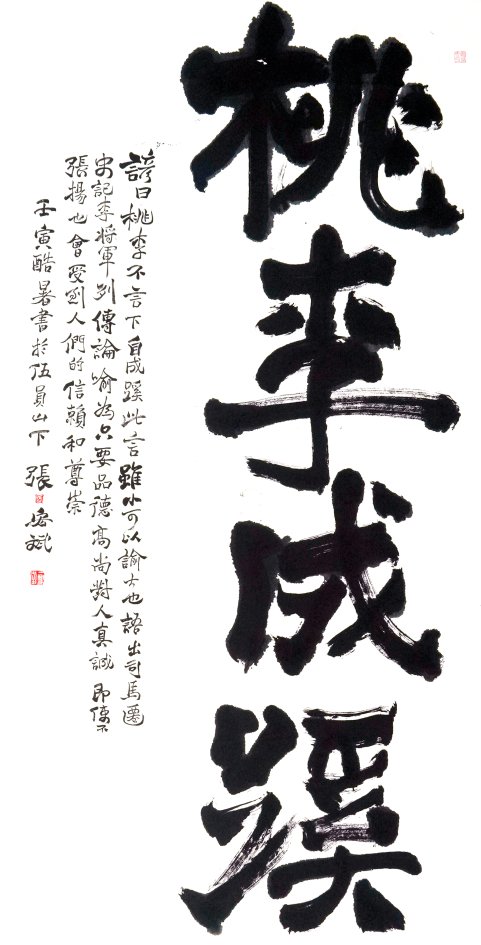 桃李成蹊
諺曰桃李不言下自成蹊此言雖小可以諭大也語出司馬遷
史記李將軍列傳論喻為只要品德高尚對人真誠即使不
張揚也會受到人們的信賴和尊崇
壬寅酷暑書於伍員山下 張斌